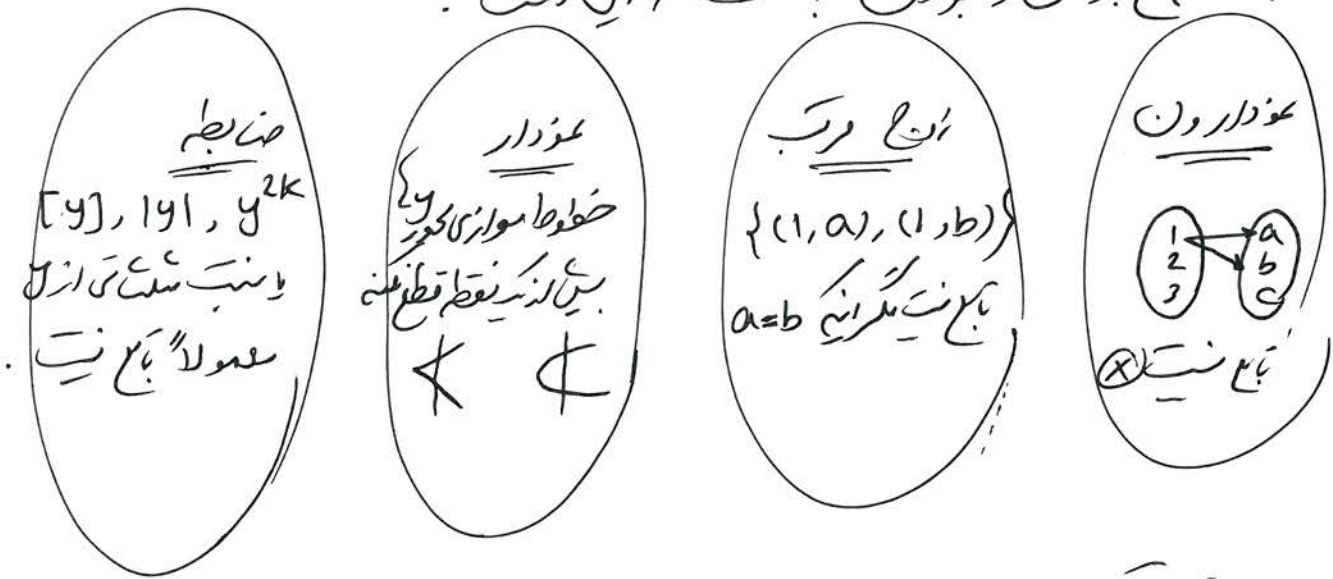 نمودار ون
1 a
2 b
3 c
تابع نیست X
ازواج مرتب
{(1,a),(1,b)}
تابع نیست مگر اینکه a=b
نمودار
خطوط موازی محور y
بیش از یک نقطه قطع کند
ضابطه
[y], |y|, y^2k
یا نسبت مثلثاتی از y
معمولاً تابع نیست.